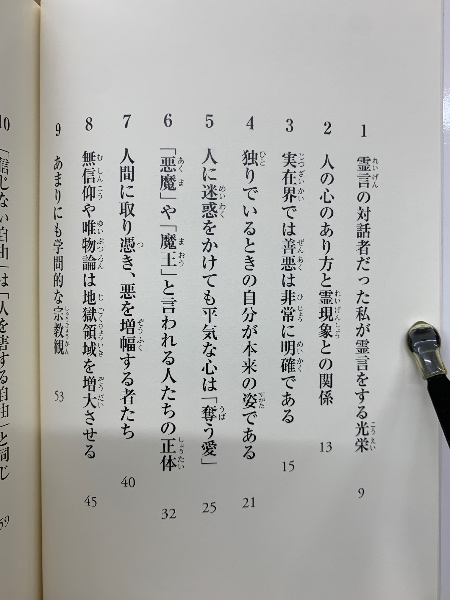 1 霊言の対話者だった私が霊言をする光栄 9
2 人の心のあり方と霊現象との関係 13
3 実在界では善悪は非常に明確である 15
4 独りでいるときの自分が本来の姿である 21
5 人に迷惑をかけても平気な心は「奪う愛」 25
6 「悪魔」や「魔王」と言われる人たちの正体 32
7 人間に取り憑き、悪を増幅する者たち 40
8 無信仰や唯物論は地獄領域を増大させる 45
9 あまりにも学問的な宗教観 53
10 「信じない自由」は「人を害する自由」と同じ 59